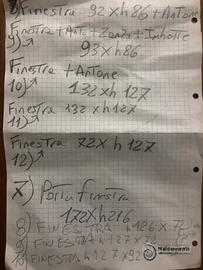 8) Finestra 92xh86 + Antone
9) Finestra + Anto + Zonda + Imbotte
93xh86
Finestra + Antone
10) 132xh127
Finestra 132xh127
11)
Finestra 72xh127
12)
X) Porta finestra
172xh216
8) FINESTRA h126x72
9) FINESTRA h127x
10) FINESTRA h127x92